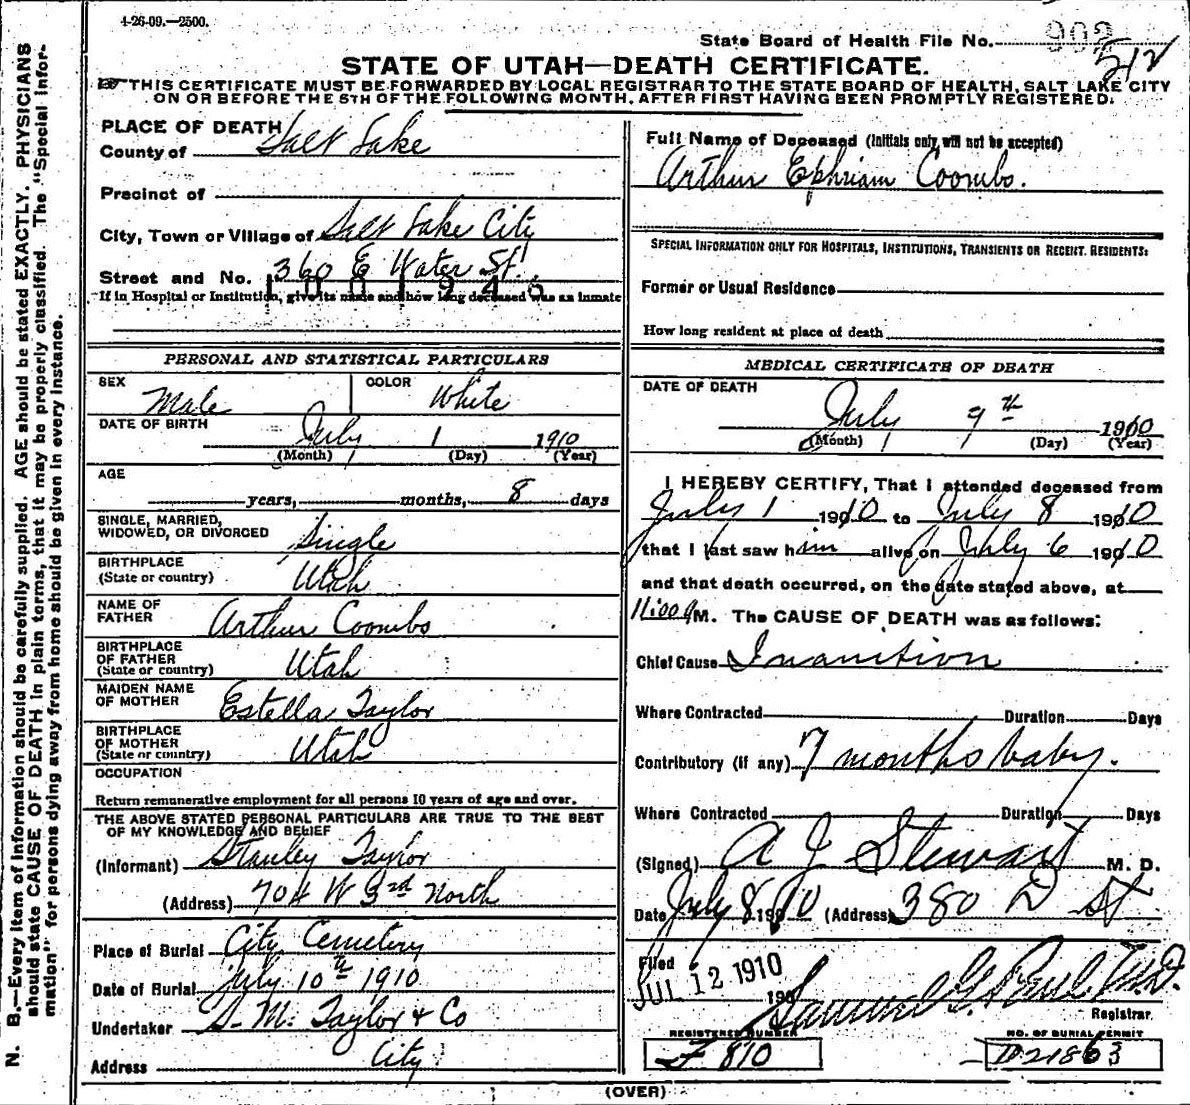 4-26-09.—2500.
State Board of Health File No. 902
512
STATE OF UTAH—DEATH CERTIFICATE.
THIS CERTIFICATE MUST BE FORWARDED BY LOCAL REGISTRAR TO THE STATE BOARD OF HEALTH, SALT LAKE CITY
ON OR BEFORE THE 5TH OF THE FOLLOWING MONTH, AFTER FIRST HAVING BEEN PROMPTLY REGISTERED.
N. B.—Every item of information should be carefully supplied. AGE should be stated EXACTLY. PHYSICIANS
should state CAUSE OF DEATH in plain terms, that it may be properly classified. The "Special Infor-
mation" for persons dying away from home should be given in every instance.
PLACE OF DEATH
County of Salt Lake
Precinct of
City, Town or Village of Salt Lake City
Street and No. 360 E Water St.
1001946
If in Hospital or Institution, give its name and how long deceased was an inmate
Full Name of Deceased (Initials only will not be accepted)
Arthur Ephriam Coombs.
SPECIAL INFORMATION ONLY FOR HOSPITALS, INSTITUTIONS, TRANSIENTS OR RECENT RESIDENTS:
Former or Usual Residence
How long resident at place of death
PERSONAL AND STATISTICAL PARTICULARS
SEX Male COLOR White
DATE OF BIRTH
July 1 1910
(Month) (Day) (Year)
AGE
years, months, 8 days
SINGLE, MARRIED,
WIDOWED, OR DIVORCED Single
BIRTHPLACE
(State or country) Utah
NAME OF
FATHER Arthur Coombs
BIRTHPLACE
OF FATHER
(State or country) Utah
MAIDEN NAME
OF MOTHER Estella Taylor
BIRTHPLACE
OF MOTHER
(State or country) Utah
OCCUPATION
Return remunerative employment for all persons 10 years of age and over.
THE ABOVE STATED PERSONAL PARTICULARS ARE TRUE TO THE BEST
OF MY KNOWLEDGE AND BELIEF
(Informant) Stanley Taylor
(Address) 704 W 3rd North
Place of Burial City Cemetery
Date of Burial July 10th 1910
Undertaker S. M. Taylor & Co
Address City
MEDICAL CERTIFICATE OF DEATH
DATE OF DEATH
July 9th 1910
(Month) (Day) (Year)
I HEREBY CERTIFY, That I attended deceased from
July 1 1910 to July 8 1910
that I last saw him alive on July 6 1910
and that death occurred, on the date stated above, at
11:00 M. The CAUSE OF DEATH was as follows:
Chief Cause Inanition
Where Contracted Duration Days
Contributory (if any) 7 months baby.
Where Contracted Duration Days
(Signed) A J Stewart M. D.
Date July 8 1910 (Address) 380 D St
Filed
JUL 12 1910
190
Samuel G. Paul M.D.
Registrar.
REGISTERED NUMBER
F 810
NO. OF BURIAL PERMIT
D21863
(OVER)